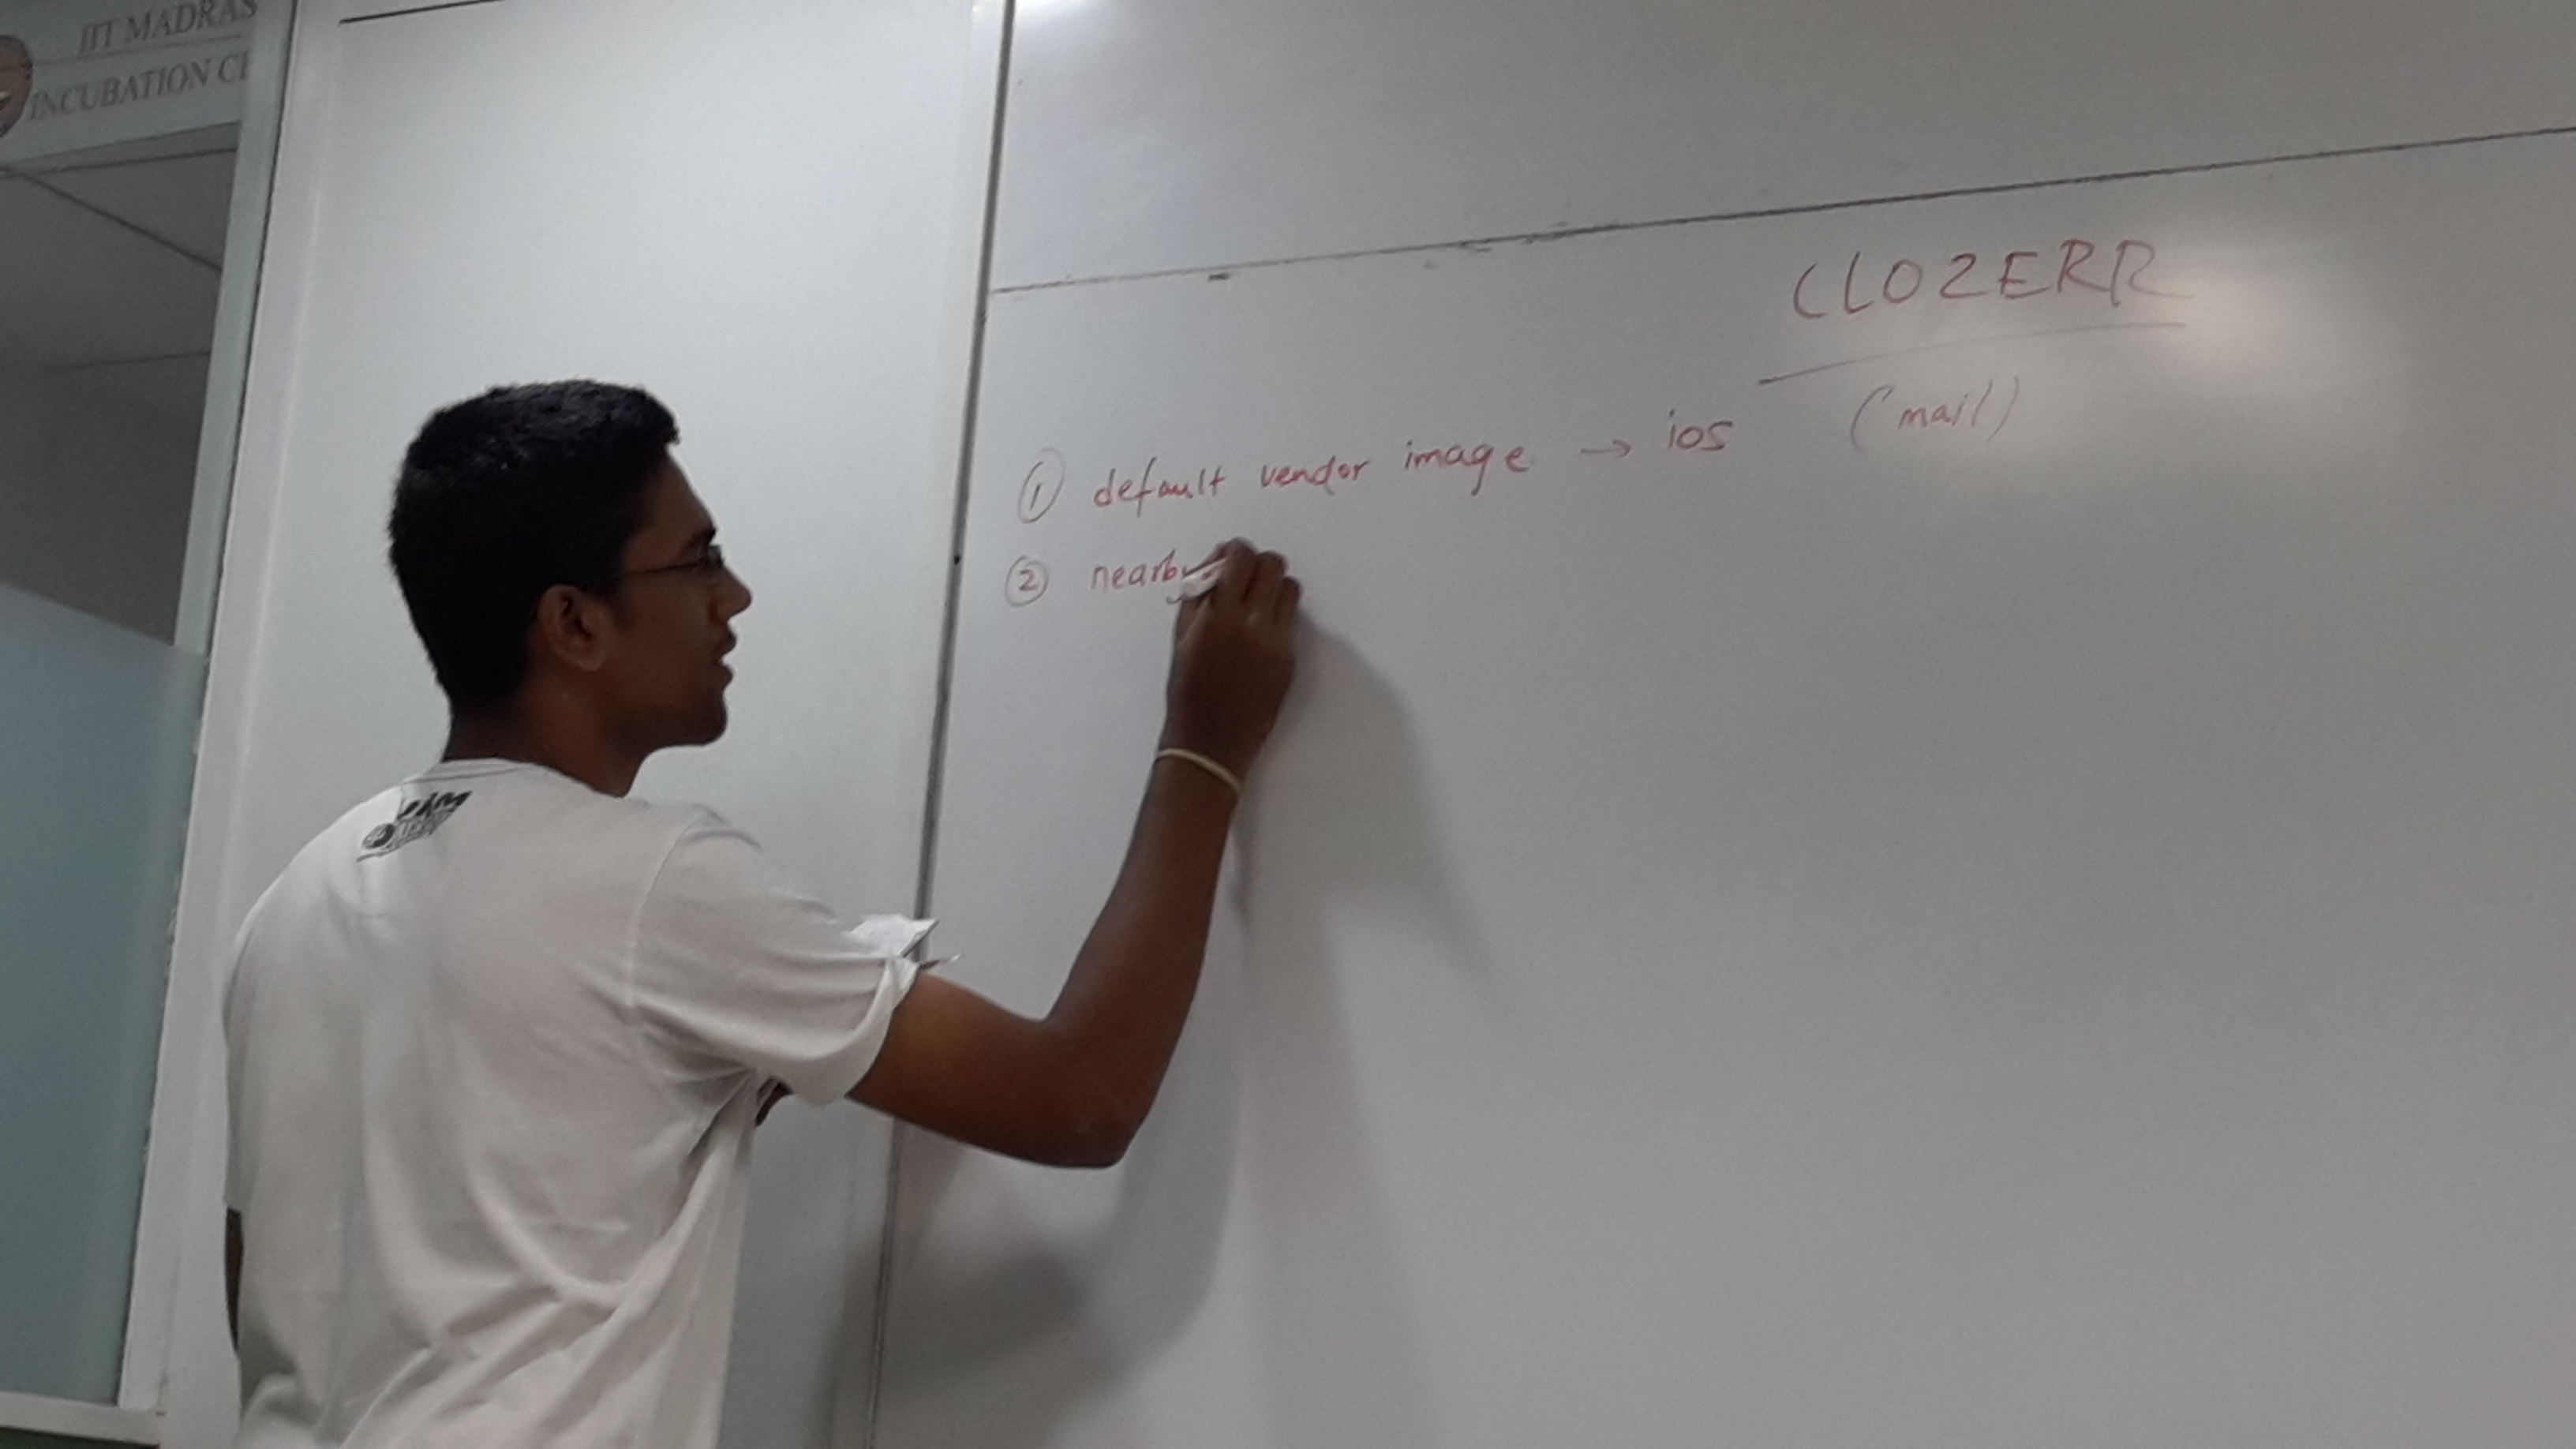 IIT MADRAS
INCUBATION
CLOZERR
(mail)
① default vendor image → ios
② nearby